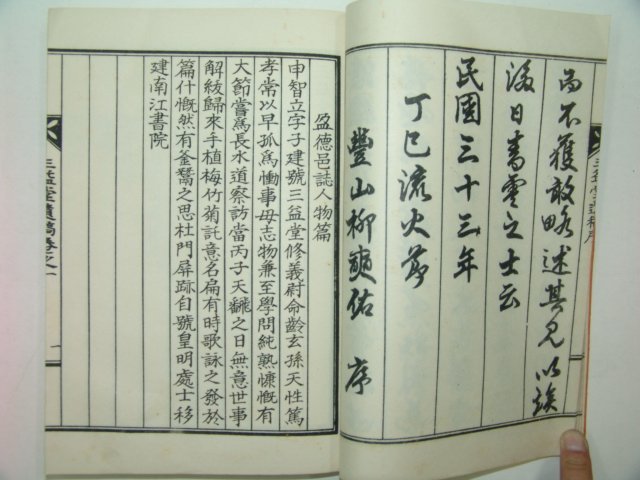 而不獲敢略述其見以竢
後日書零之士云
民國三十三年
丁巳流火節
豐山柳奭佑 序
三益堂遺稿序
盈德邑誌人物篇
申智立字子建號三益堂修義尉命齡玄孫天性篤
孝常以早孤爲慟事母志物兼至學問純熟慷慨有
大節嘗爲長水道察訪當丙子天飜之日無意世事
解紱歸來手植梅竹菊託意名扁有時歌詠之發於
篇什慨然有釜鬵之思杜門屏跡自號皇明處士移
建南江書院
三益堂遺稿卷之一
一